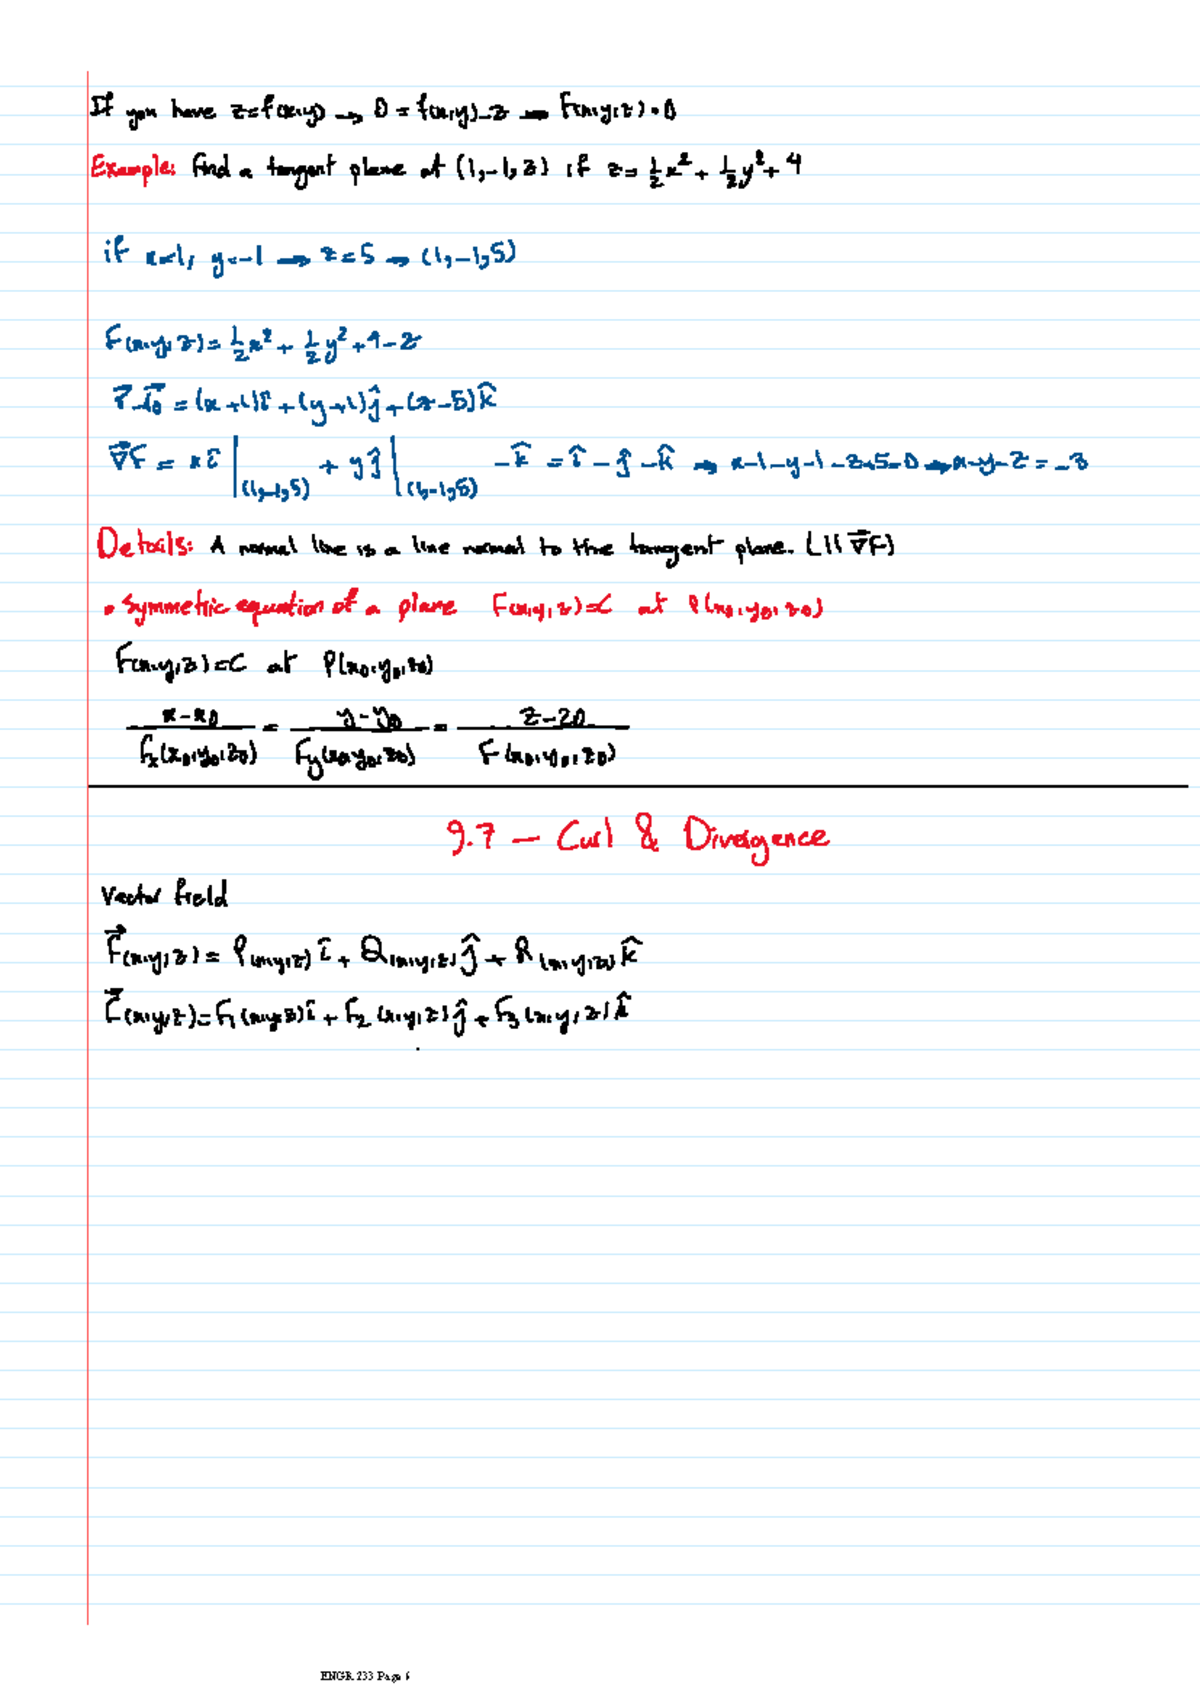 If you have z=f(x,y) → 0 = f(x,y)-z → F(x,y,z)=0
Example: find a tangent plane at (1,-1,3) if z= 1/2 x² + 1/2 y² + 4
if x=1, y=-1 → z=5 → (1,-1,5)
F(x,y,z)= 1/2 x² + 1/2 y² + 4 - z
r⃗-r⃗₀ = (x+1)î + (y+1)ĵ + (z-5)k̂
∇⃗F = x î |(1,-1,5) + y ĵ |(1,-1,5) - k̂ = î - ĵ - k̂ → x-1-y-1-z+5=0 → x-y-z=-3
Details: A normal line is a line normal to the tangent plane. (L || ∇⃗F)
• Symmetric equation of a plane F(x,y,z)=C at P(x0,y0,z0)
F(x,y,z)=C at P(x0,y0,z0)
x-x0 / Fx(x0,y0,z0) = y-y0 / Fy(x0,y0,z0) = z-z0 / F(x0,y0,z0)
9.7 - Curl & Divergence
Vector field
F⃗(x,y,z) = P(x,y,z) î + Q(x,y,z) ĵ + R(x,y,z) k̂
F⃗(x,y,z) = F₁(x,y,z) î + F₂(x,y,z) ĵ + F₃(x,y,z) k̂
ENGR 233 Page 6